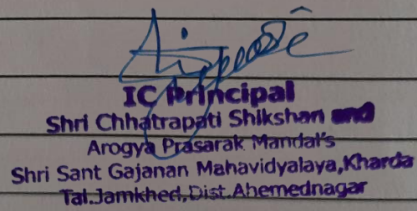 IC Principal
Shri Chhatrapati Shikshan and
Arogya Prasarak Mandal's
Shri Sant Gajanan Mahavidyalaya,Kharda
Tal.Jamkhed,Dist.Ahemednagar